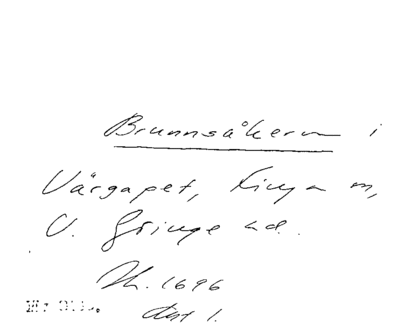 Brunnsåkern i
Värgapet, Kinga sn,
V. Göinge hd.
Jb. 1696
akt 1.